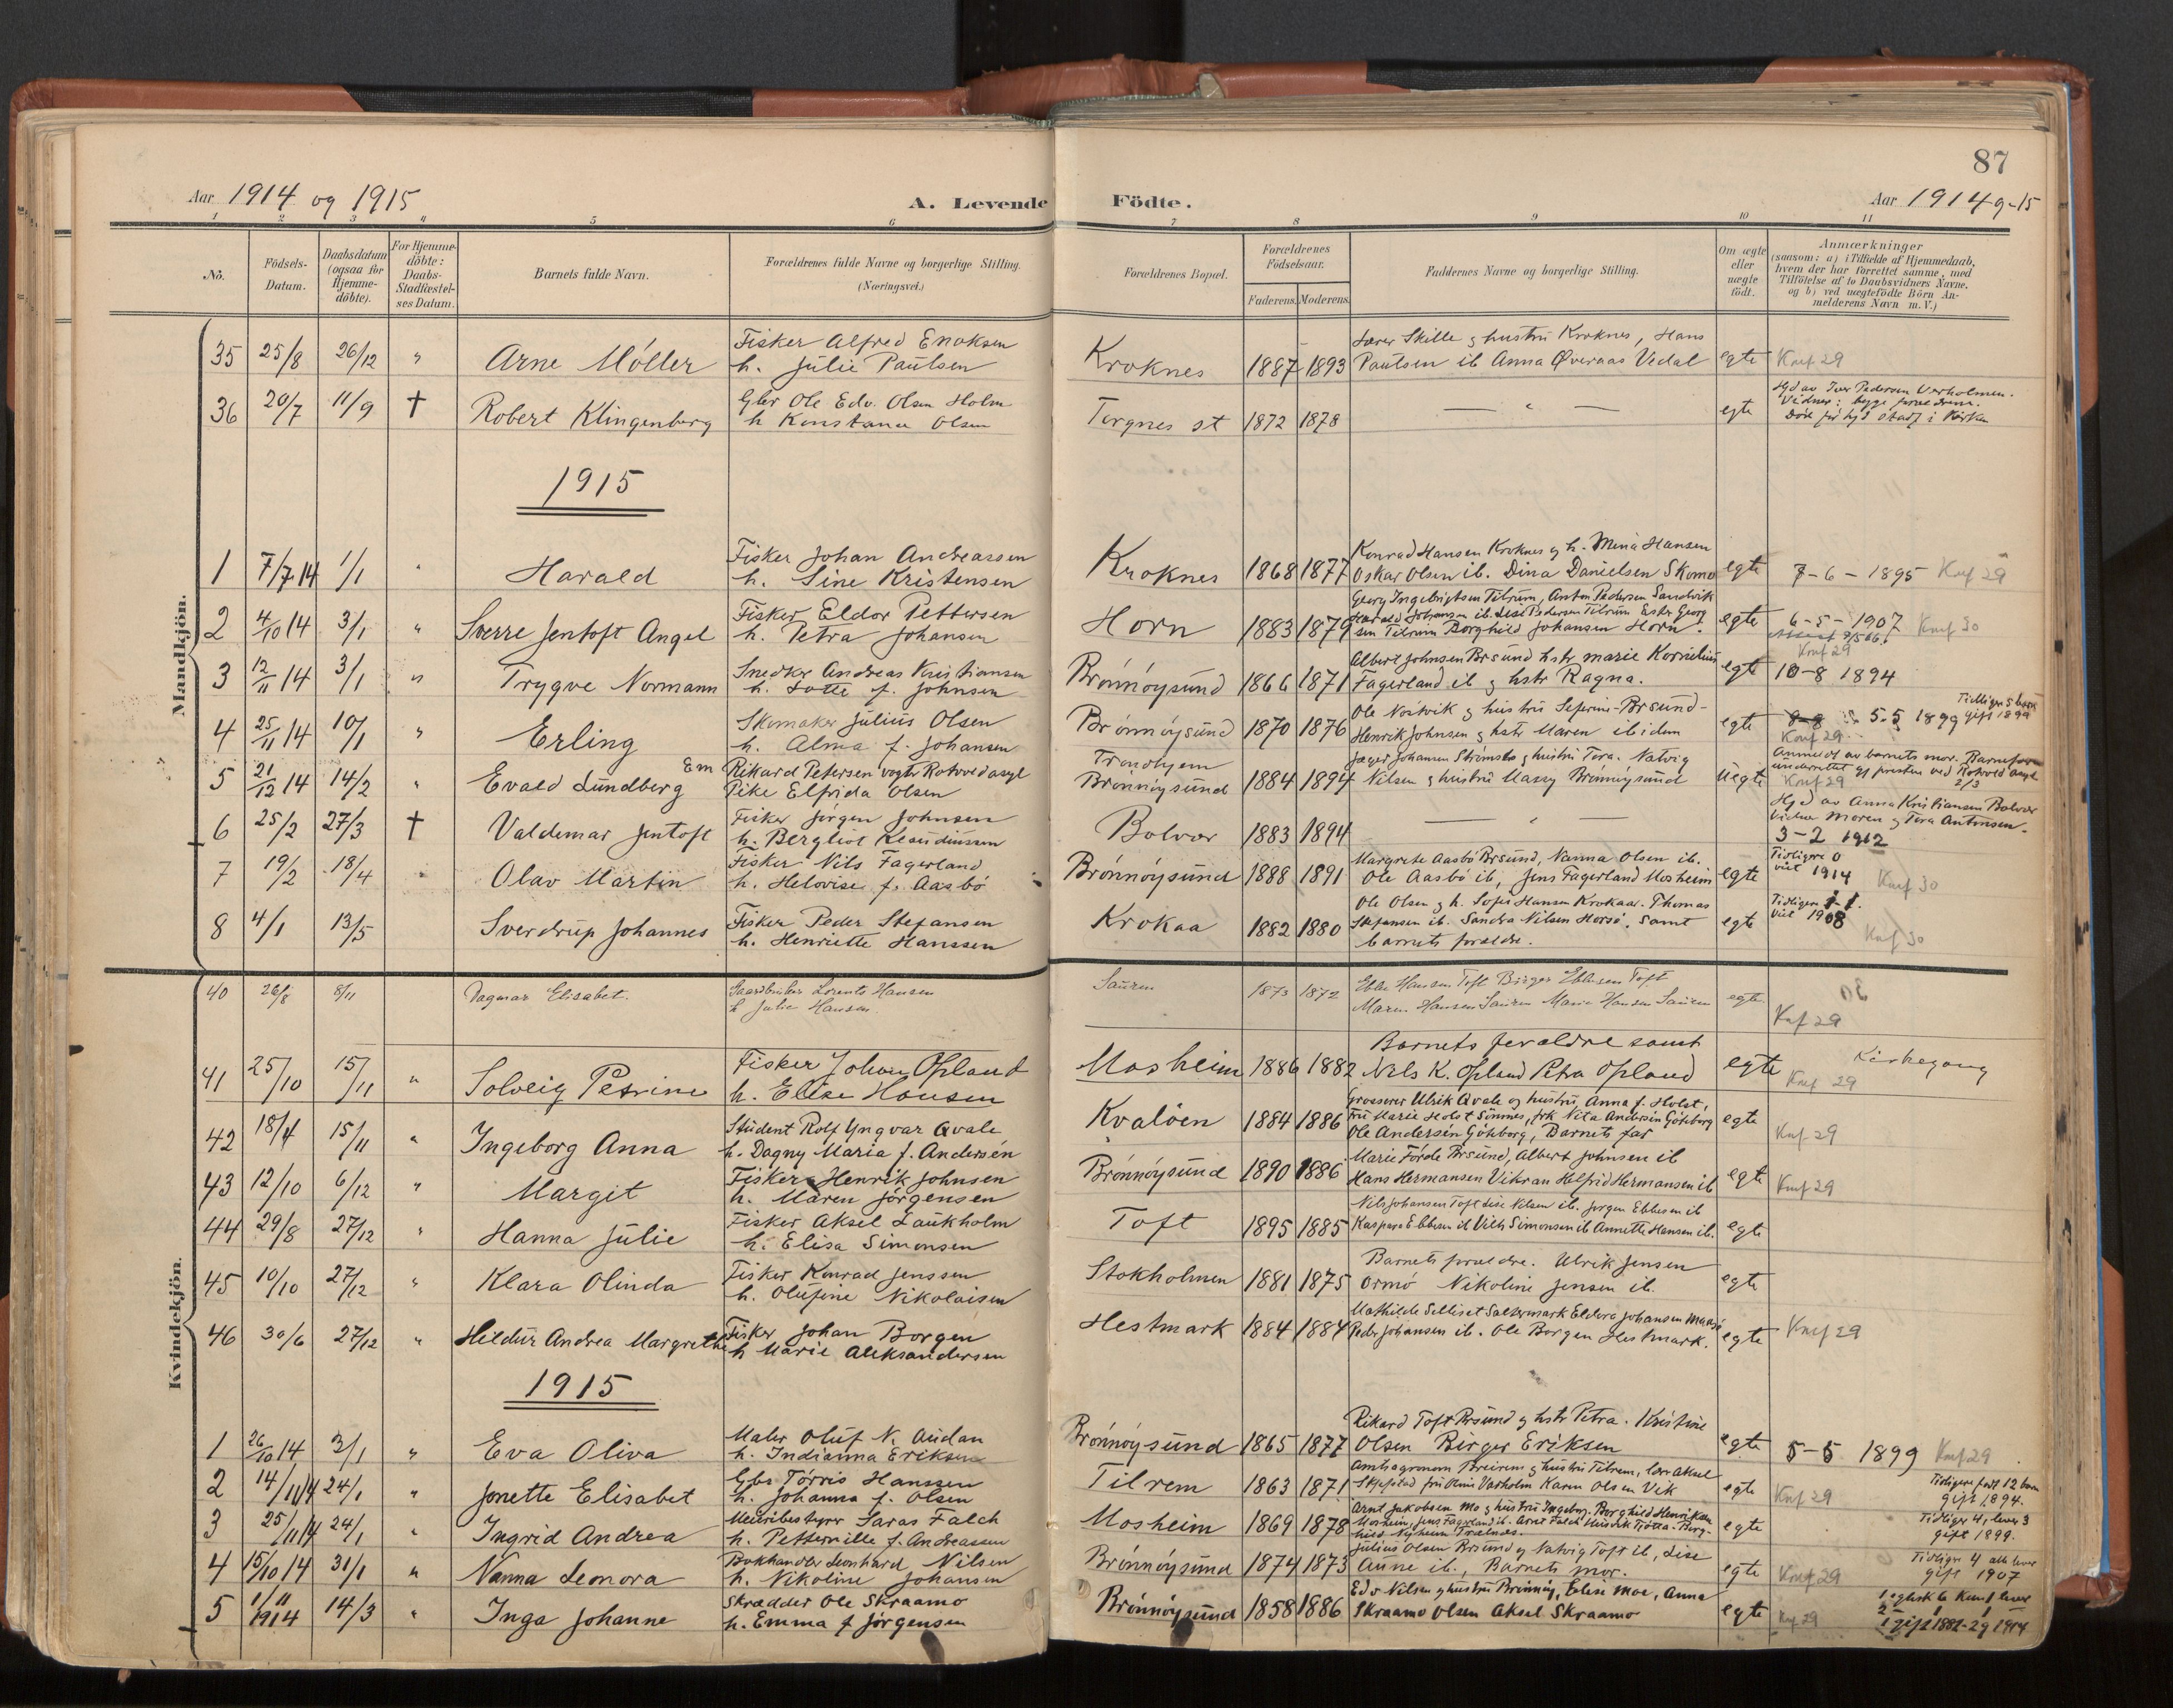 87
Aar 1914 og 1915
A. Levende Födte.
Aar 1914 og -15
1 2 3 4 5 6 7 8 9 10 11
No. Födsels-Datum. Daabsdatum (ogsaa for Hjemme-döbte). For Hjemme-döbte: Daabs-Stadfæstel-ses Datum. Barnets fulde Navn. Forældrenes fulde Navne og borgerlige Stilling. (Næringsvei.) Forældrenes Bopæl. Forældrenes Födselsaar. Faderens. Moderens. Faddernes Navne og borgerlige Stilling. Om ægte eller uægte födt. Anmærkninger (saasom: a) i Tilfælde af Hjemmedaab, hvem der har forrettet samme, med Tilföielse af to Daabsvidners Navne, og b) ved uægtefödte Börn An-melderens Navn m. V.)
Mandkjön.
35 25/8 26/12 " Arne Möller Fisker Alfred Enoksen
h. Julie Paulsen Kroknes 1887 1893 Lærer Skille g hustru Kroknes, Hans
Paulsen ib Anna Øveraas Vedal egte Knf 29
36 20/7 11/9 † Robert Klingenberg Gbr Ole Edv. Olsen Holm
h Konstance Olsen Torgnes st 1872 1878 — " — egte Hjd av Iver Pedersen Verholmen.
Vidner: begge forældrene.
Död för hjd stadf i Kirken
1915
1 7/7 14 1/1 " Harald Fisker Johan Andreassen
h. Sine Kristensen Kroknes 1868 1877 Konrad Hansen Kroknes g h. Mina Hansen
Oskar Olsen ib. Dina Danielsen Skomo egte 7-6-1895 Knf 29
2 4/10 14 3/1 " Sverre Jentoft Angel Fisker Eldor Pettersen
h. Petra Johansen Horn 1883 1879 Georg Ingebrigtsen Tilrum, Anton Pedersen Sandvik
Harald Johansen ib. Lise Pedersen Tilrum Ester Georg
sen Tilrum Borghild Johansen Horn. egte 6-5-1907 Knf 30
3 12/11 14 3/1 " Trygve Normann Snedker Andreas Kristiansen
h. Lotte f. Johnsen Brönnöysund 1866 1871 Albert Johnsen Brsund hstr Marie Kornelius
Fagerland ib g hstr Ragna. egte Knf 29
10-8 1894
4 25/11 14 10/1 " Erling Skomaker Julius Olsen
h. Alma f. Johansen Brönnöysund 1870 1876 Ole Nostvik g hustru Seferine Brsund-
Henrik Johnsen g hstr Maren ibidem egte 5-5 1899 Tidligere 5 barn
gift 1899
Knf 29
5 21/12 14 14/2 " Evald Lundberg Em Rikard Petersen vogter Rotvold asyl
Pike Elfrida Olsen Trondhjem
Brönnöysund 1884 1894 Jæger Johansen Strömsto g hustru Tora. Natvig
Nilsen g hustru Massy Brönnöysund Uegte Anmeldt av barnets mor. Barnefaren
underrettet gj presten ved Rotvold asyl
Knf 29 2/3
6 25/2 27/3 † Valdemar Jentoft Fisker Jörgen Johnsen
h. Bergliot Klaudiussen Bolvær 1883 1894 — " — Hjd av Anna Kristiansen Bolvær
Vidner Moren g Tora Antonsen.
3-2 1912
7 19/2 18/4 Olav Martin Fisker Nils Fagerland
h. Helovise f. Aasbö Brönnöysund 1888 1891 Margrete Aasbö Brsund, Nanna Olsen ib.
Ole Aasbö ib, Jens Fagerland Mosheim egte Tidligere 0
viet 1914 Knf 30
8 4/1 13/5 Sverdrup Johannes Fisker Peder Stefansen
h. Henriette Hanssen Krokaa 1882 1880 Ole Olsen g h. Sofie Hansen Krokaa. Thomas
Stefansen ib. Sandra Nilsen Horsö. Samt
barnets forældre. egte Tidligere 1
Viet 1908
Knf 30
Kvindekjön.
40 26/8 8/11 Dagmar Elisabet. Gaardbruker Lorents Hansen
h Julie Hansen. Sauren 1873 1872 Ebbe Hansen Toft Birger Ebbesen Toft
Maren Hansen Sauren Marie Hansen Sauren egte 30
Knf 29
41 25/10 15/11 " Solveig Petrine Fisker Johan Opland
h. Elise Hansen Mosheim 1886 1882 Barnets forældre samt
Nils K. Opland Petra Opland egte Kirkegang
Knf 29
42 18/4 15/11 " Ingeborg Anna Student Rolf Yngvar Qvale
h. Dagny Maria f. Andersén Kvalöen 1884 1886 Grosserer Ulrik Qvale og hustru Anna f. Holst,
Fru Marie Holst Sömnes, frk Nita Andersén Göteborg
Ole Andersén Göteborg, Barnets far egte Knf 29
43 12/10 6/12 " Margit Fisker Henrik Johnsen
h. Maren Jörgensen Brönnöysund 1890 1886 Marie Förde Brsund, Albert Johnsen ib
Hans Hermansen Vikran Helfrid Hermansen ib egte Knf 29
44 29/8 27/12 " Hanna Julie Fisker Aksel Laukholm
h. Elisa Simonsen Toft 1895 1885 Nils Johansen Toft Lise Nilsen ib. Jörgen Ebbesen ib
Kaspara Ebbesen ib Vilh Simonsen ib Annette Hansen ib. egte
45 10/10 27/12 " Klara Olinda Fisker Konrad Jenssen
h. Olufine Nikolaisen Stokholmen 1881 1875 Barnets forældre. Ulrik Jensen
Ormö Nikoline Jensen ib. egte
46 30/6 27/12 " Heldur Andrea Margrethe Fisker Johan Borgen
h Marie Aleksandersen Hestmark 1884 1884 Mathilde Selliset Saltermark Eldora Johansen Maasö
Peder Johansen ib. Ole Borgen Hestmark. egte Knf 29
1915
1 26/10 14 3/1 " Eva Oliva Maler Oluf N. Audan
h. Indianna Eriksen Brönnöysund 1865 1877 Rikard Toft Brsund g hstr Petra. Kristine
Olsen Birger Eriksen egte 5-5 1899 Knf 29
2 14/11 14 24/1 " Jonette Elisabet Gbr Törris Hanssen
h. Johanna f. Olsen Tilrem 1863 1871 Amtsagronom Breirem g hustru Tilrem, lærer Aksel
Skjefstad fru Olina Varholm Karen Olsen Vik egte Knf 29 Tidligere født 12 barn
gift 1894.
3 25/11 14 24/1 " Ingrid Andrea Meieribestyrer Saras Falch
h. Petternille f. Andreassen Mosheim 1869 1878 Arnt Jakobsen Mo g hustru Ingeborg. Borghild Henriksen
Mosheim, Jens Fagerland ib. Arnt Falch Husvik Tjötta. Borg-
hild Nyheim Trælnes. egte Tidliger 4, lever 3
gift 1899.
4 15/10 14 31/1 " Nanna Leonora Bokhandler Leonhard Nilsen
h. Nikoline Johansen Brönnöysund 1874 1873 Julius Olsen Brsund g Natvig Toft ib, Lise
Aune ib., Barnets mor. egte Knf 29 Tidligere 4 alle lever
gift 1907
5 1/11 1914 14/3 " Inga Johanne Skrædder Ole Skraamo
h. Emma f Jörgensen Brönnöysund 1858 1886 Edv Nilsen g hustru Brönnöy, Elise Moe, Anna
Skraamo Olsen Aksel Skraamo egte Knf 29 1 egtesk 6 Kun 1 lever
2 - 1 1
1 gift 1882- 2g 1914